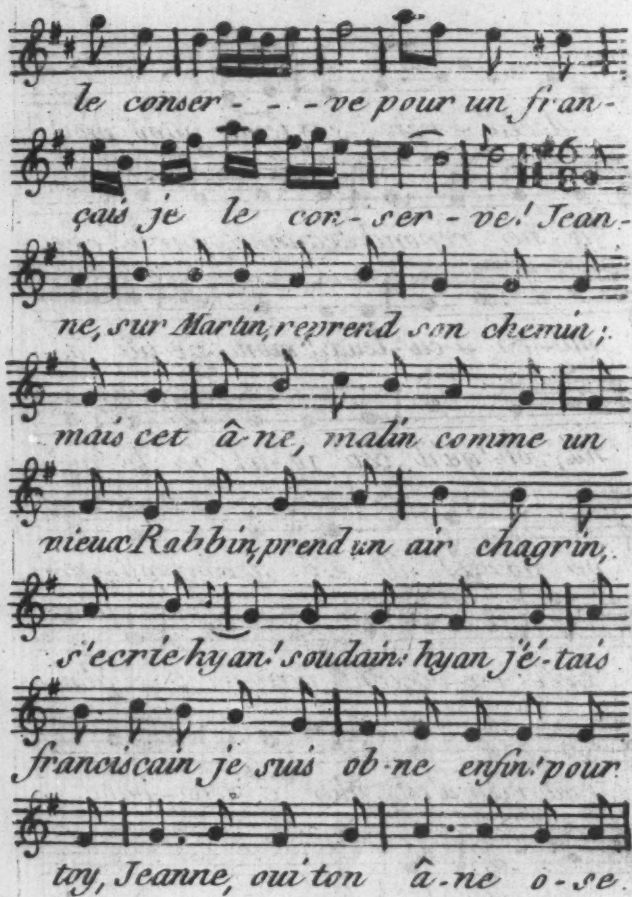 le conser - - - ve pour un fran-
çais je le con - ser - ve! Jean-
ne, sur Martin, reprend son chemin;
mais cet â-ne, malin comme un
vieux Rabbin, prend un air chagrin,
s'ecrie hyan! soudain: hyan j'é-tais
franciscain je suis ob-ne enfin! pour
toy, Jeanne, oui ton â-ne o-se